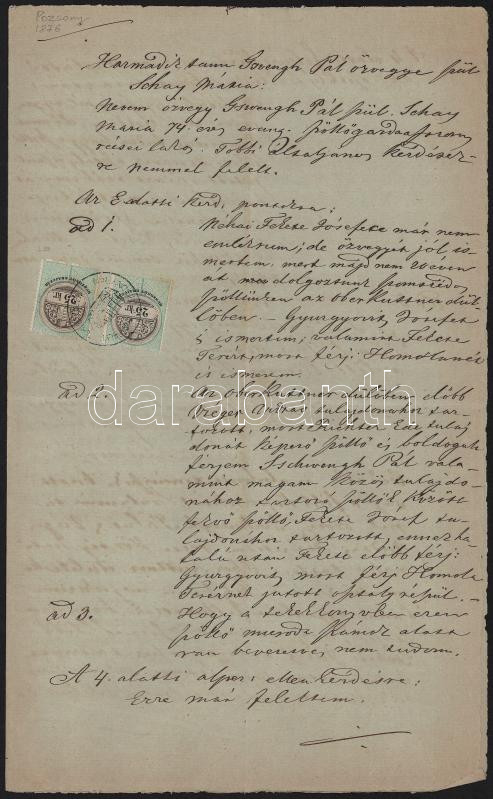 Pozsony
1876
Harmadik tanu Gswengh Pál özvegye szül.
Schay Mária:
Nevem özvegy Gswengh Pál szül. Schay
Mária 74 éves evang. szöllőgazda
lakos. Többi általános kérdések-
re nemmel felelt.
Az Eset alatti kérd. pontokra:
ad 1.
Néhai Fekete Józsefet már nem
emlékszem; de özvegyét jól is-
mertem, mert majd nem 20 éven
át dolgoztunk szomszédos
szöllőinkben az oberkustner dül-
lőben. - Gyurgyovits Józsefet
is ismertem; valamint Fekete
Terézt, most férj. Homoláné
is ismerem.
25 kr
25 kr
ad 2.
Az oberkustner dülőben előbb
tulajdonához tar-
tozott, most Richter Ede tulaj-
donát képező szöllő és boldogult
férjem Gschwengh Pál vala-
mint magam közös tulajdo-
nához tartozó szöllők között
fekvő szöllő, Fekete József tu-
lajdonához tartozott, ennek ha-
lála után Fekete előbb férj.
Gyurgyovits, most férj. Homola
Teréznek jutott osztályrészül. -
ad 3.
Hogy a telekkönyvben ezen
szöllő micsoda számok alatt
van bevezetve, nem tudom.
A 4. alatti alper. ellenkérdésre:
Erre már feleltem.
darabanth